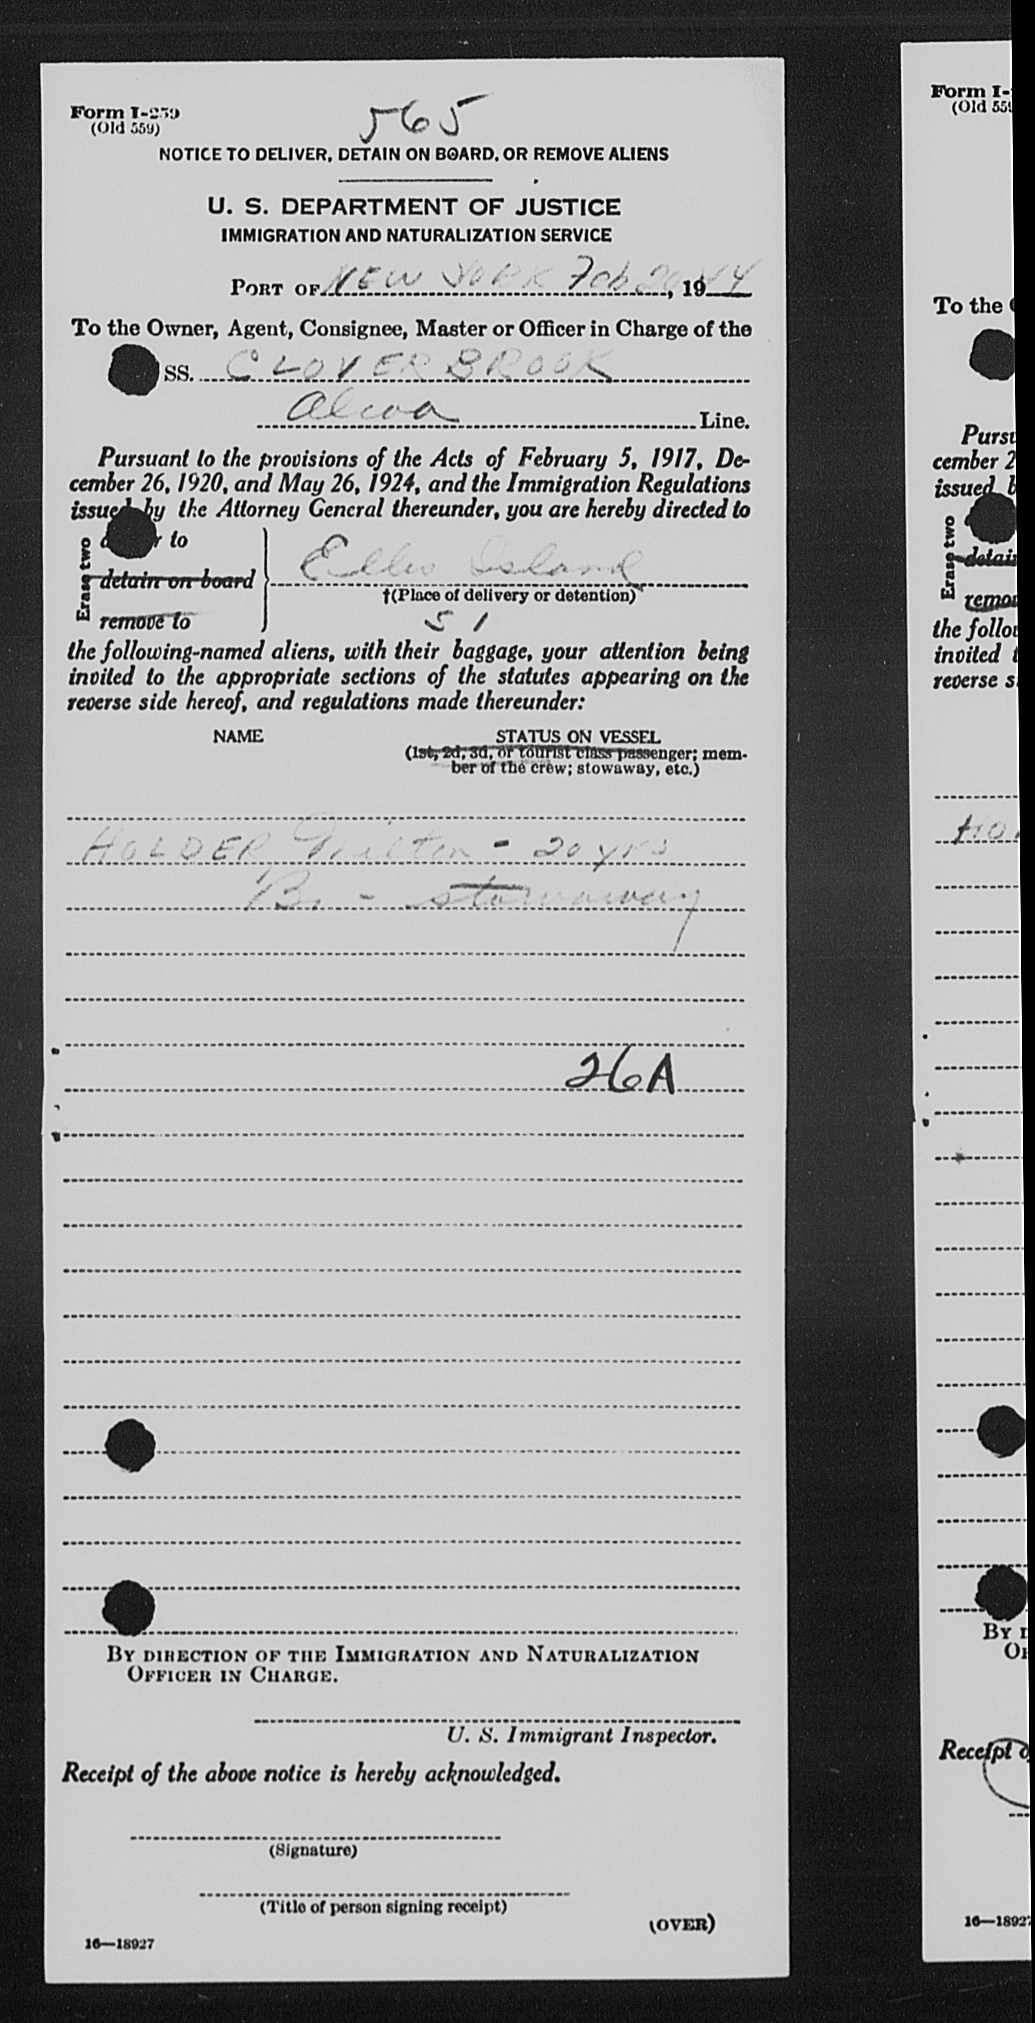 Form I-259
(Old 559)
565
NOTICE TO DELIVER, DETAIN ON BOARD, OR REMOVE ALIENS
U. S. DEPARTMENT OF JUSTICE
IMMIGRATION AND NATURALIZATION SERVICE
PORT OF NEW YORK Feb 20, 1944
To the Owner, Agent, Consignee, Master or Officer in Charge of the
SS. CLOVERBROOK
Alcoa Line.
Pursuant to the provisions of the Acts of February 5, 1917, De-
cember 26, 1920, and May 26, 1924, and the Immigration Regulations
issued by the Attorney General thereunder, you are hereby directed to
Erase two
to
detain on board
remove to
Ellis Island
†(Place of delivery or detention)
51
the following-named aliens, with their baggage, your attention being
invited to the appropriate sections of the statutes appearing on the
reverse side hereof, and regulations made thereunder:
NAME STATUS ON VESSEL
(1st, 2d, 3d, or tourist class passenger; mem-
ber of the crew; stowaway, etc.)
HOLDER, Milton - 20 yrs
B. - stowaway
26A
BY DIRECTION OF THE IMMIGRATION AND NATURALIZATION
OFFICER IN CHARGE.
U. S. Immigrant Inspector.
Receipt of the above notice is hereby acknowledged.
(Signature)
(Title of person signing receipt)
(OVER)
16—18927
Form I-
(Old 559
To the
Pursu
cember 2
issued b
Erase two
detain
remov
the follow
invited t
reverse s
HO
BY
Receipt o
16—18927